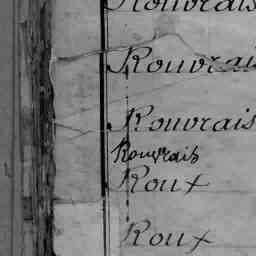 Rouvrais
Rouvrais
Rouvrais
Rouvrais
Roux
Roux